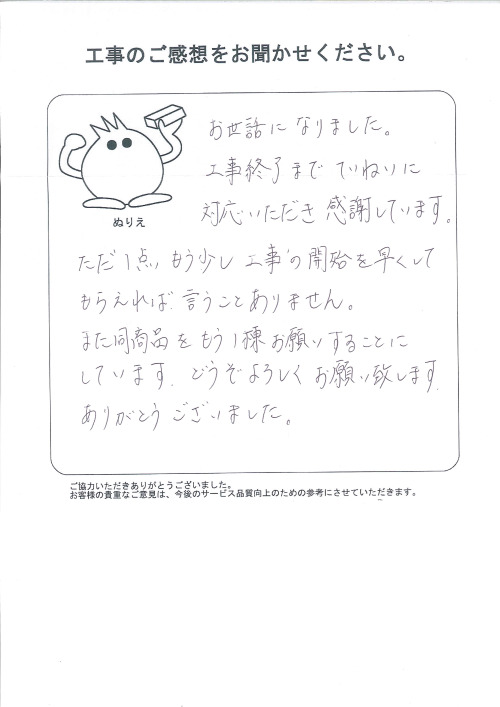 工事のご感想をお聞かせください。
お世話になりました。
工事終了まで ていねいに
対応いただき 感謝しています。
ぬりえ
ただ1点、もう少し 工事の開始を早くして
もらえれば 言うことありません。
また同商品をもう1棟お願いすることに
しています。どうぞよろしくお願い致します。
ありがとうございました。
ご協力いただきありがとうございました。
お客様の貴重なご意見は、今後のサービス品質向上のための参考にさせていただきます。